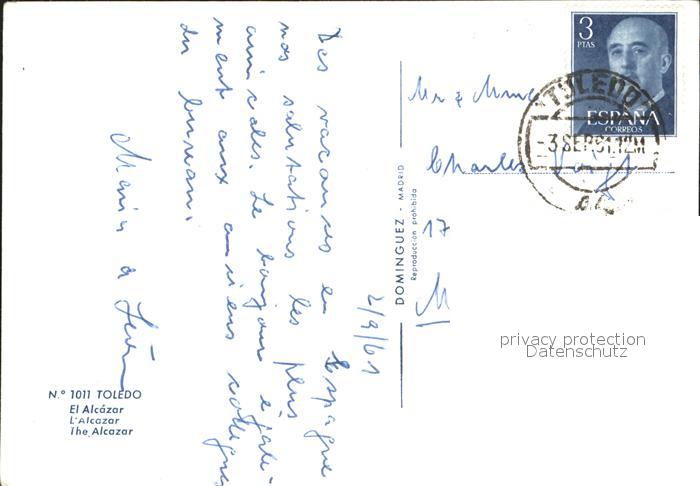 2/9/61
Des vacances en Espagne
nos salutations les plus
amicales. Le bonjour égale-
ment aux anciens collègues
du bureau.
Maria &
Mr & Mme
Charles
17
M
3
PTAS
ESPAÑA
CORREOS
TOLEDO
-3 SEP.61.12M
DOMINGUEZ - MADRID
Reproducción prohibida
privacy protection
Datenschutz
N.º 1011 TOLEDO
El Alcázar
L'Alcazar
The Alcazar